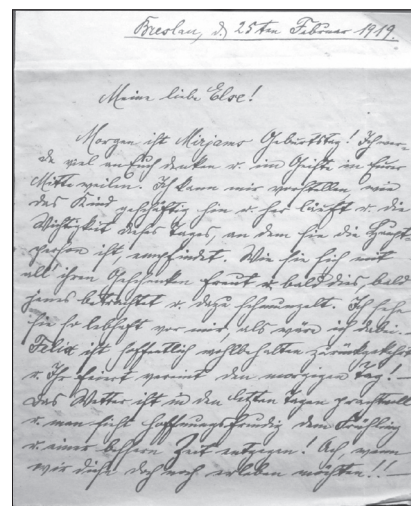 Breslau, d. 25ten Februar 1919.
Meine liebe Else!
Morgen ist Mirjams Geburtstag! Ich wer-
de viel an Euch denken u. im Geiste in Eurer
Mitte weilen. Ich kann mir vorstellen wie
das Kind geschäftig hin u. her läuft u. die
Wichtigkeit dieses Tages, an dem sie die Haupt
person ist, empfindet. Wie sie sich mit
all ihren Geschenken freut u. bald dies, bald
jenes betrachtet u. dazu schmunzelt. Ich sehe
sie so lebhaft vor mir, als wäre ich dabei.
Felix ist hoffentlich wohlbehalten zurückgekehrt
u. Ihr feiert vereint den morgigen Tag! –
Das Wetter ist in den letzten Tagen prachtvoll
u. man sieht hoffnungsfreudig dem Frühling
u. einer bessern Zeit entgegen! Ach, wenn
wir diese doch noch erleben möchten!!